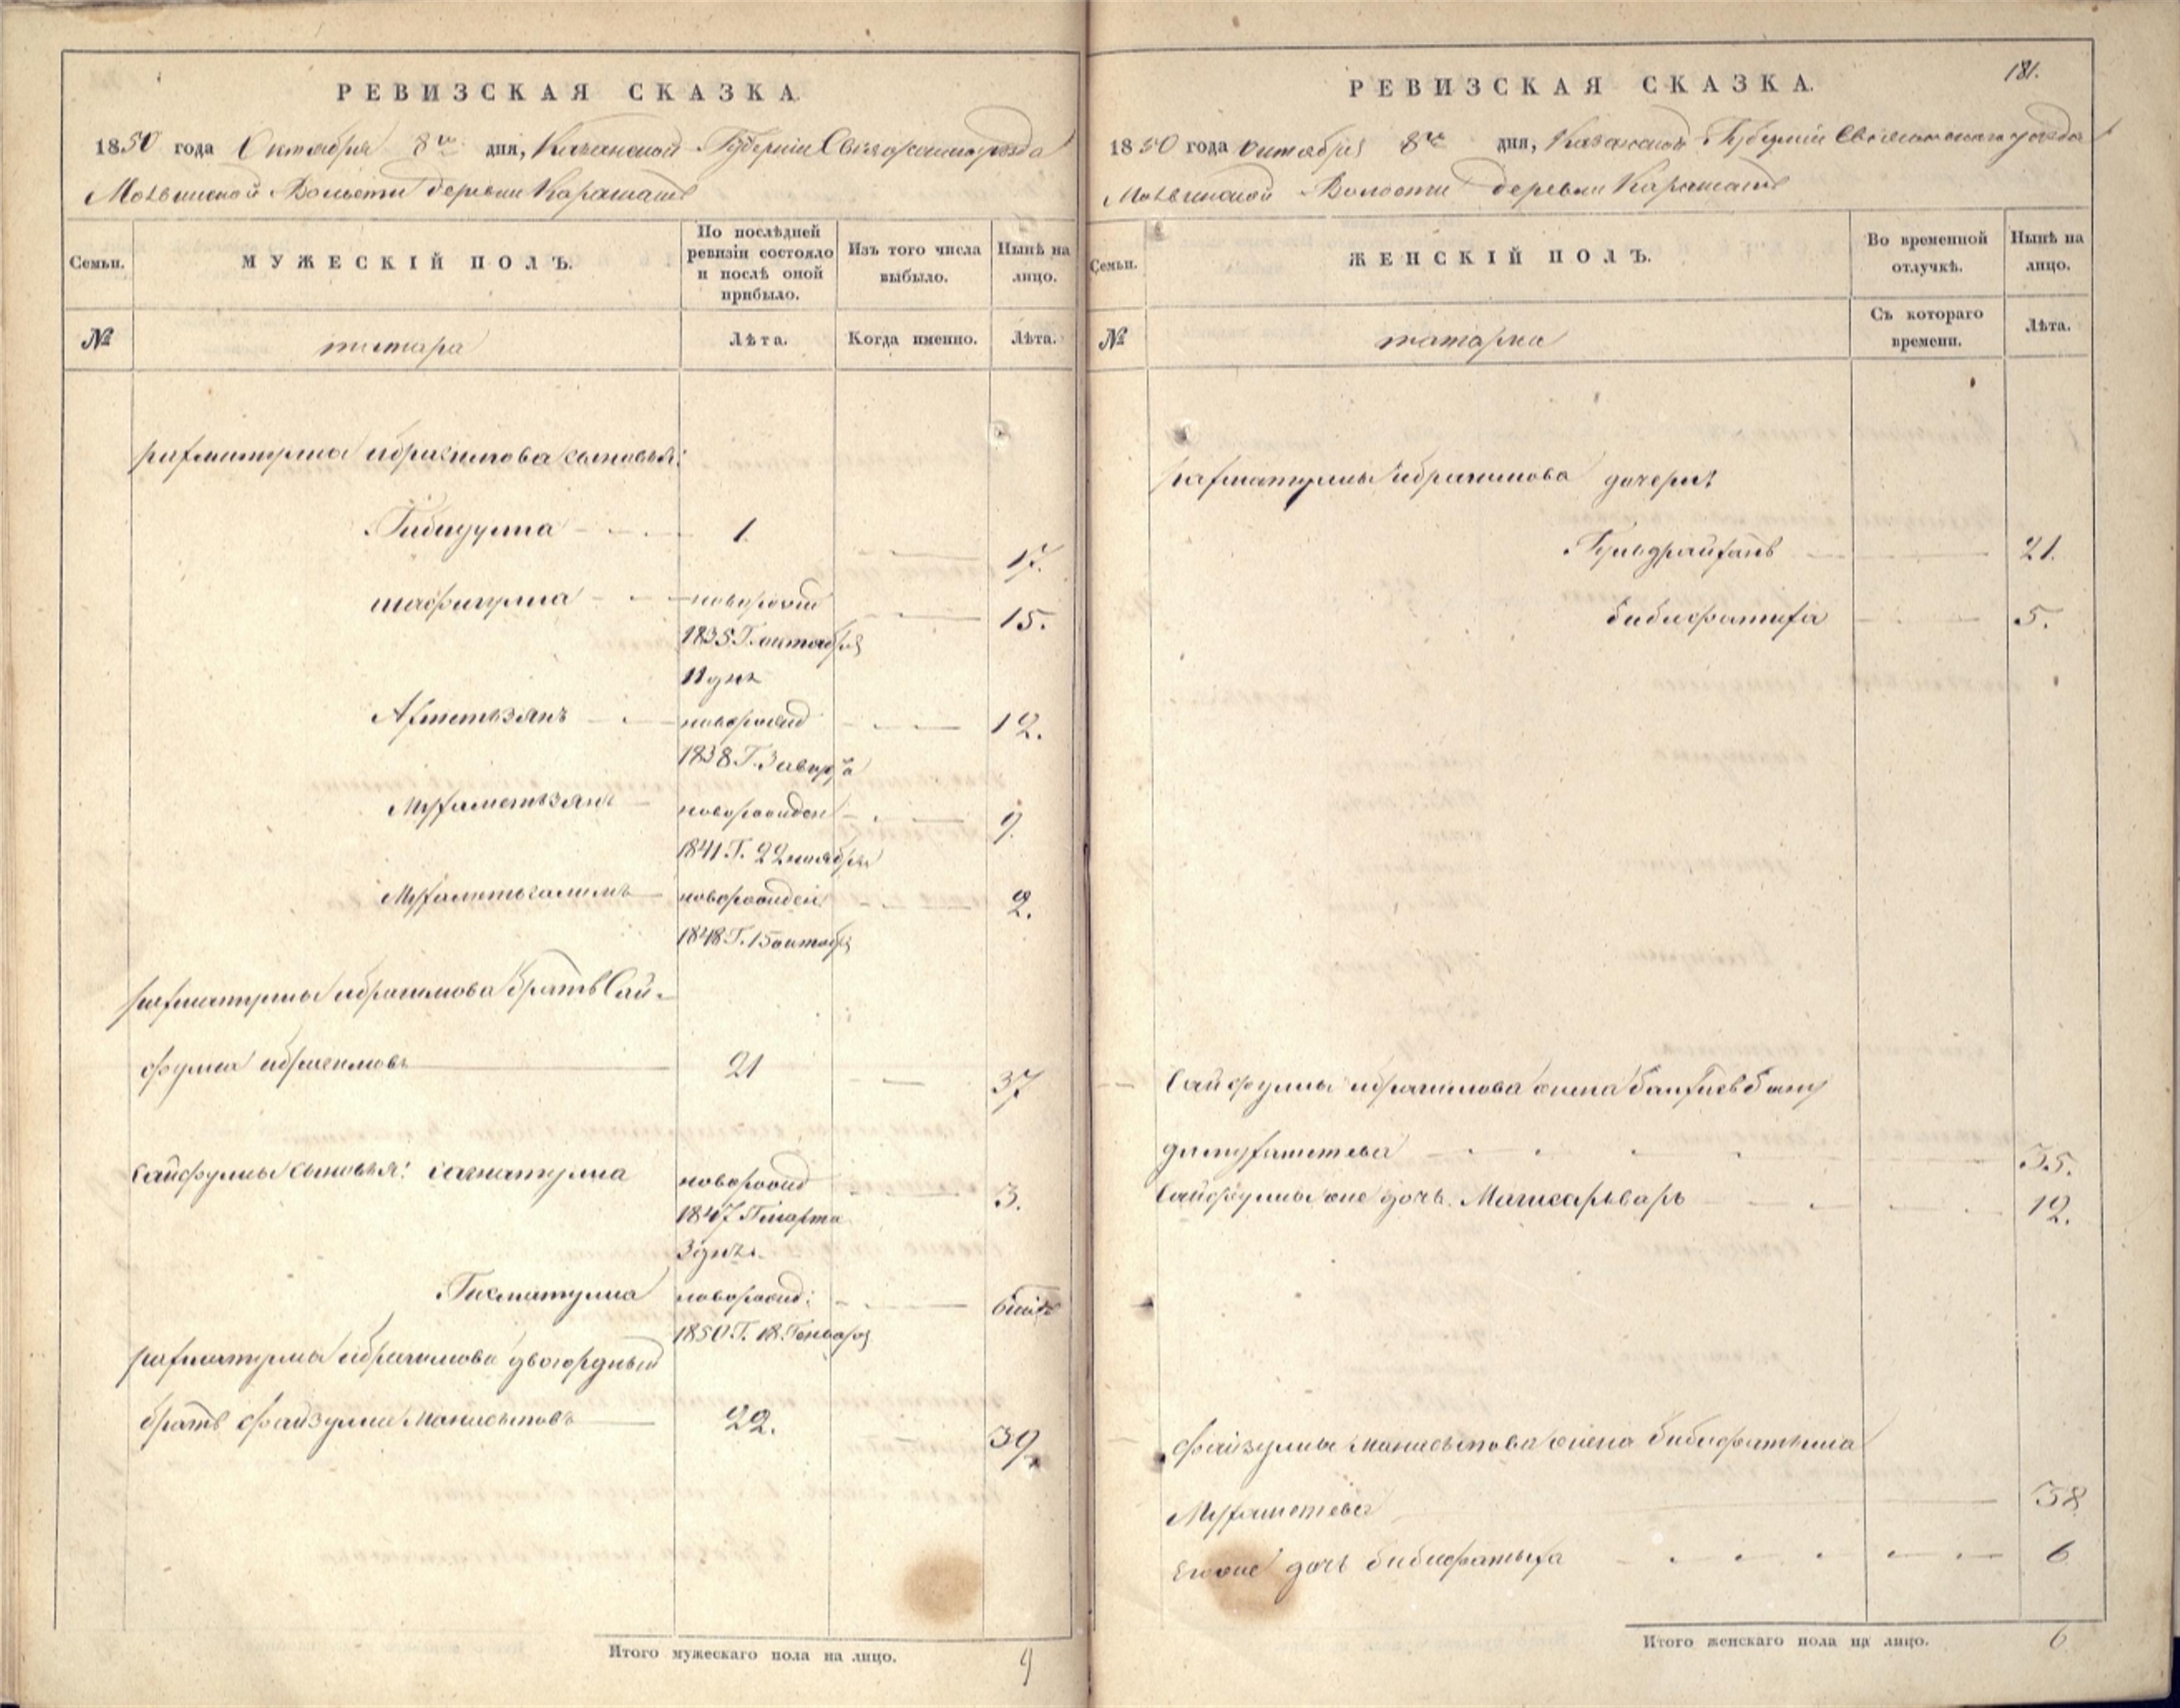 РЕВИЗСКАЯ СКАЗКА.
1850 года Октября 8го дня, Казанской Губернiи Свiяжскаго уѣзда
Волости деревни
Семьи.
МУЖЕСКIЙ ПОЛЪ.
По послѣдней ревизiи состояло и послѣ оной прибыло.
Изъ того числа выбыло.
Нынѣ на лицо.
№
татара
Лѣта.
Когда именно.
Лѣта.
рахматуллы ибрагимова сыновья:
Гибадулла 1. 17.
шафигулла новорожд 15.
1835 Г. октября
11 днѧ
Ахметьзянъ новорожд 12.
1838 Г. 3
Мухаметьзянъ новорожден 9.
1841 Г. 22 ноября
Мухаметьгалимъ новорожден 2.
1848 Г. 15 октября
рахматуллы ибрагимова братъ Сай-
фулла ибрагимовъ 21 37
Сайфуллы сыновья: новорожд 3.
1847 Г марта
3 дня
новорожд: 6
1850 Г. 18. Генваря
рахматуллы ибрагимова двоюрдный
братъ файзулла 22. 39
Итого мужескаго пола на лицо. 9
181.
РЕВИЗСКАЯ СКАЗКА.
1850 года октября 8го дня, Казанской Губернiи Свiяжскаго уѣзда
Волости деревни
Семьи.
ЖЕНСКIЙ ПОЛЪ.
Во временной отлучкѣ.
Нынѣ на лицо.
№
татарка
Съ котораго времени.
Лѣта.
рахматуллы ибрагимова дочери:
21.
бибифатиха 5.
Сайфуллы ибрагимова жена
35.
Сайфуллы же дочь 12.
файзуллы жена
Мухаметева 38
Его же дочь бибифатыха 6
Итого женскаго пола на лицо. 6